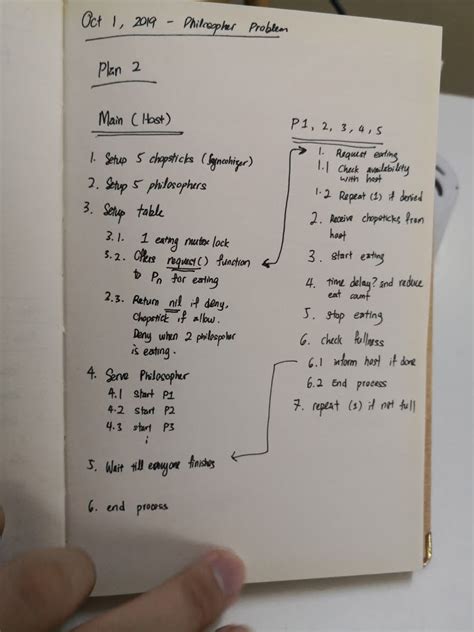 Oct 1, 2019 - Philosopher Problem
Plan 2
Main (Host)
1. Setup 5 chopsticks (Synchonizer)
2. Setup 5 philosophers
3. Setup table
3.1. 1 eating mutex lock
3.2. Offers request() function
to Pn for eating
2.3. Return nil if deny,
chopstick if allow.
Deny when 2 philosopher
is eating.
4. Serve Philosopher
4.1 start P1
4.2 start P2
4.3 start P3
5. Wait till everyone finishes
6. end process
P1, 2, 3, 4, 5
1. Request eating
1.1 Check availability
with host
1.2 Repeat (1) if denied
2. Receive chopsticks from
host
3. start eating
4. time delay? and reduce
eat count
5. stop eating
6. check fullness
6.1 inform host if done
6.2 end process
7. repeat (1) if not full